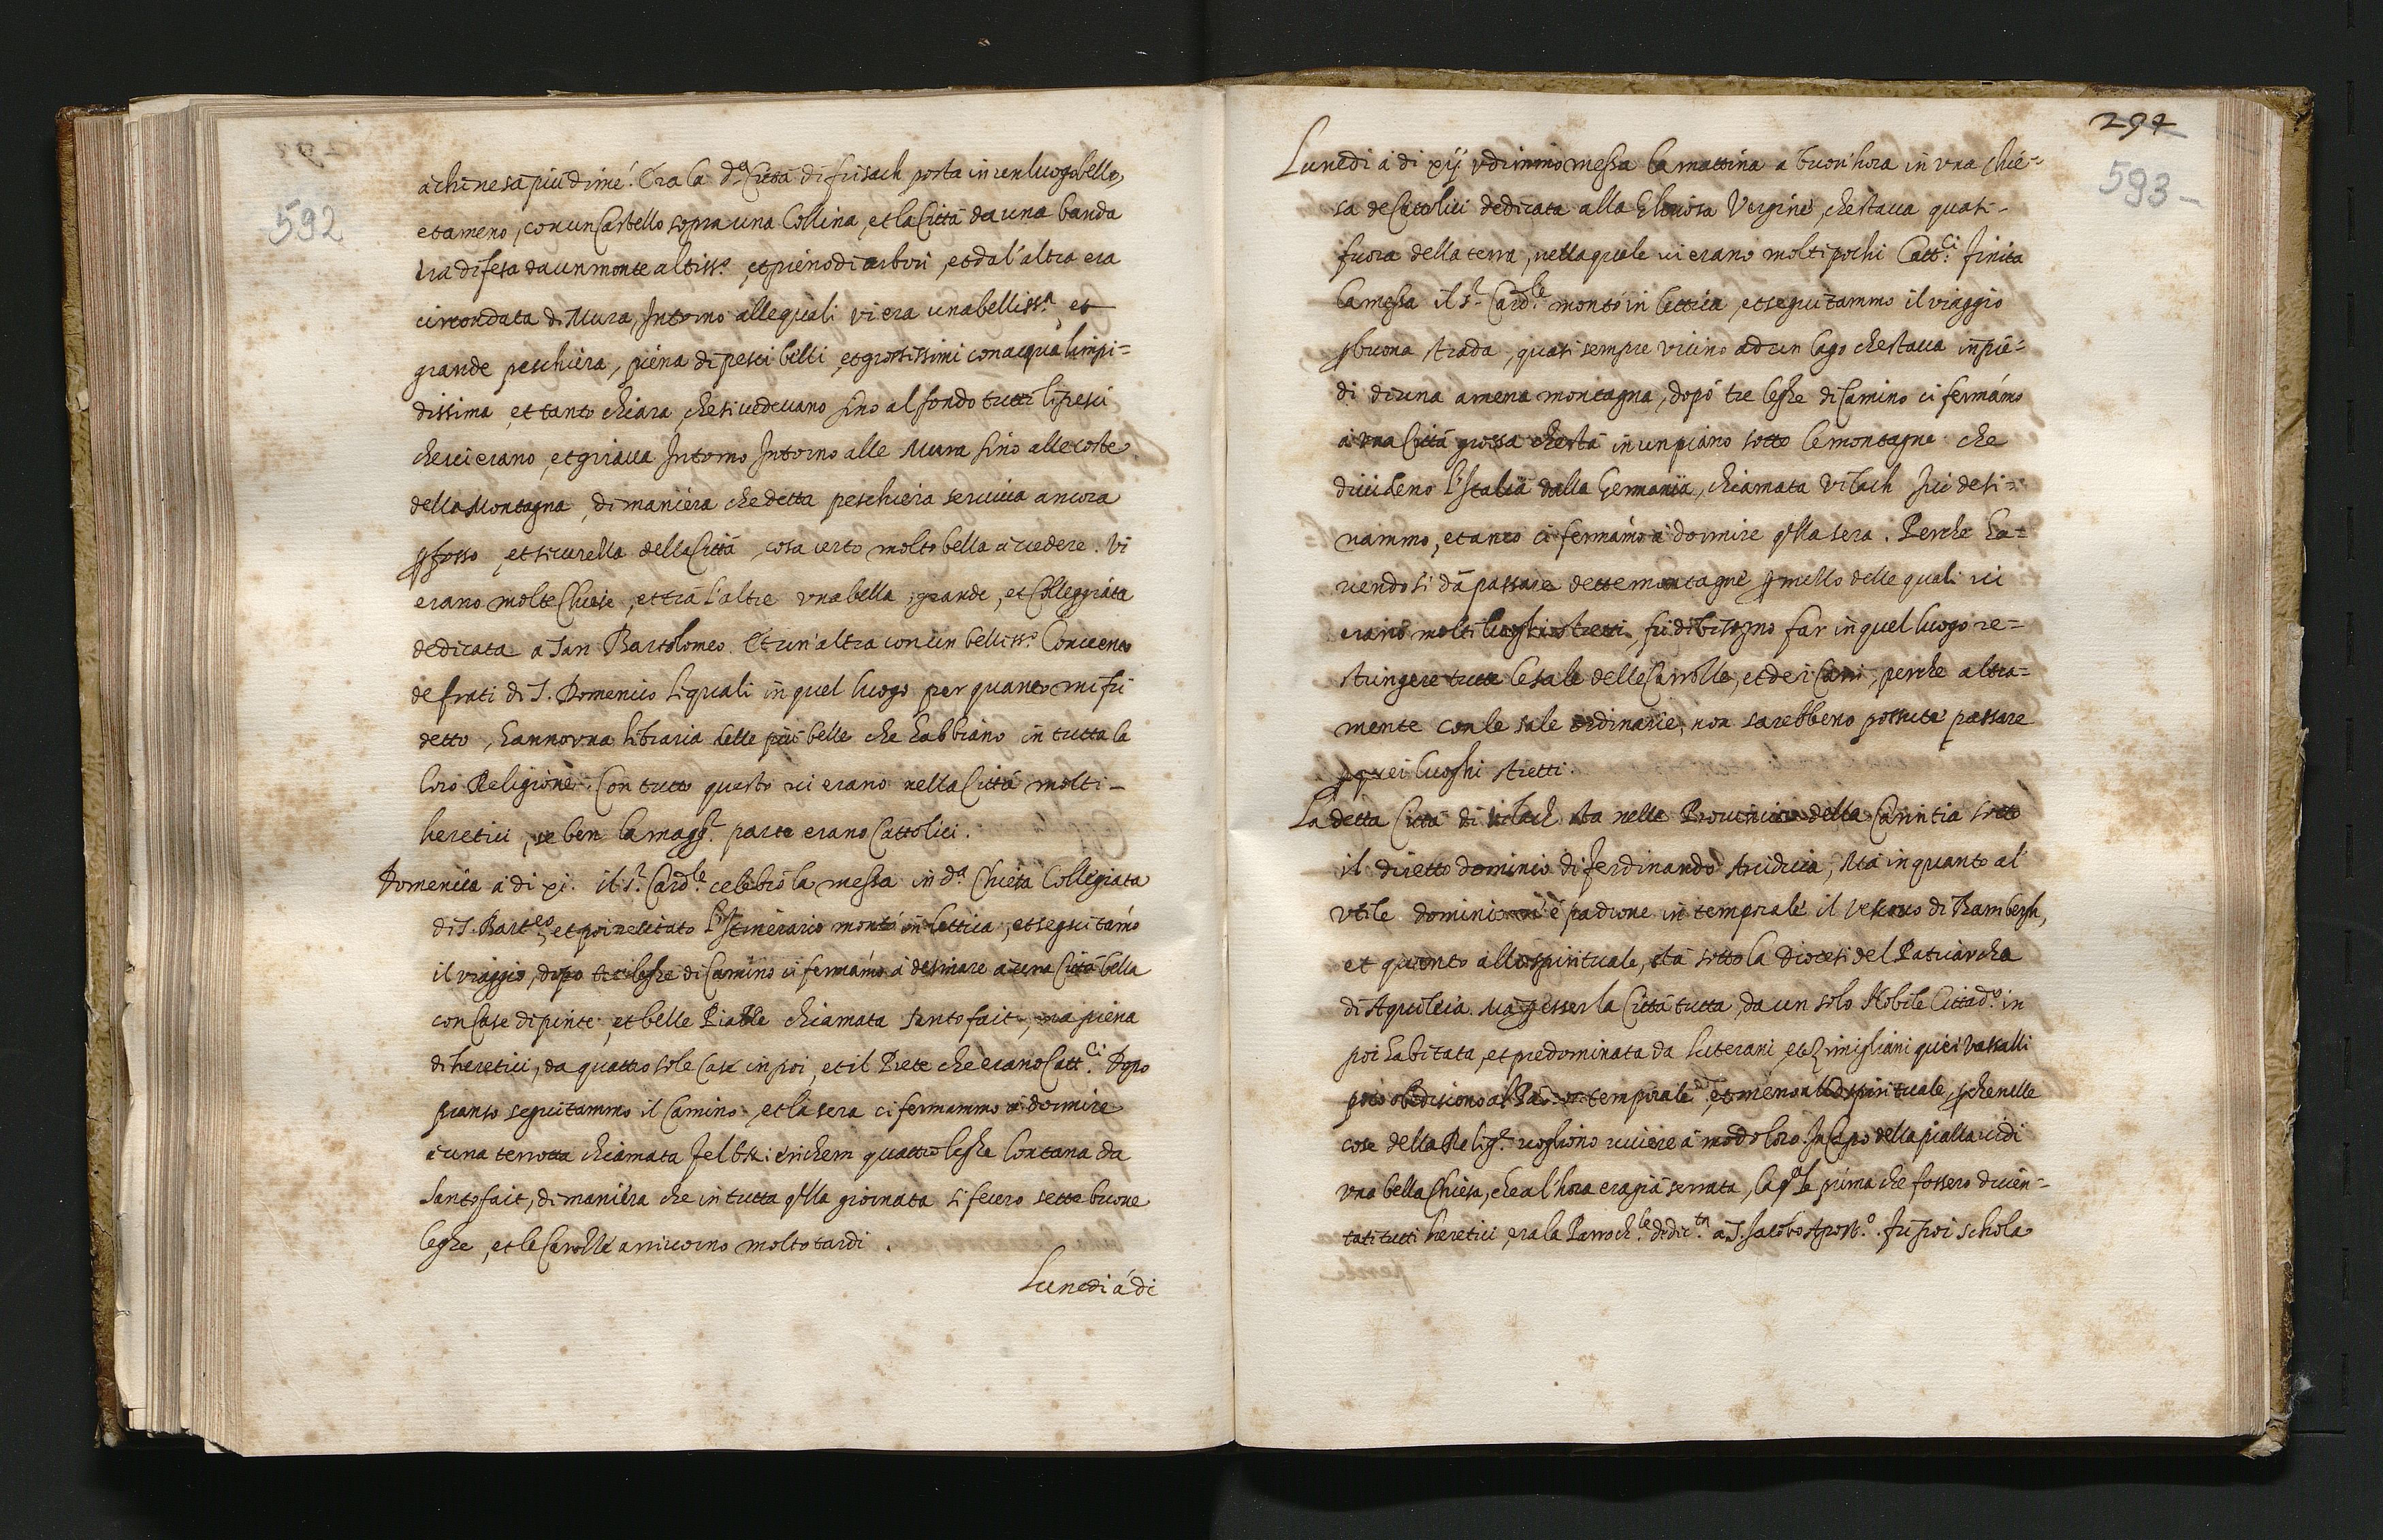 592
à chi ne sa più di me. Era la d.ª Città di frisach posta in un luogo bello,
et ameno, con un Castello sopra una Collina, et la Città da una banda
era difesa da un monte altiss.º et pieno di arbori, et da l'altra era
circondata di Mura, Intorno alle quali vi era una belliss.ª et
grande peschiera, piena di pesci belli, et grossissimi con acqua limpi=
dissima, et tanto chiara, che si vedevano sino al fondo tutti li pesci
che vi erano, et girava Intorno Intorno alle Mura sino alle coste
della Montagna, di maniera che detta peschiera serviva ancora
p fosso, et sicurezza della Città, cosa certo molto bella à vedere. Vi
erano molte Chiese, et trà l'altre vna bella, grande, et Colleggiata
dedicata a San Bartolomeo. Et un'altra con un belliss.º Convento
de frati di S. Domenico li quali in quel luogo per quanto mi fù
detto, hanno vna libraria delle più belle che habbiano in tutta la
loro Religione. Con tutto questo vi erano nella Città molti-
heretici, se ben la magg.r parte erano Cattolici.
Domenica à di xi. il S.r Card.le celebrò la messa in d.ª Chiesa Collegiata
di S. Bart.eo, et poi recitato l'Itinerario montò in lettica, et seguitàmo
il viaggio, dopo tre leghe di Camino ci fermàmo à desinare à una Città bella
con Case dipinte, et belle Piazze chiamata Santo fait, ma piena
di heretici, da quattro sole Case in poi, et il Prete che erano Catt.ci Dopo
pranso seguitammo il Camino, et la sera ci fermammo à dormire
à una terrotta chiamata quattro leghe lontana da
Santo fait, di maniera che in tutta qlla giornata si fecero sette buone
leghe, et le Carozze arrivorno molto tardi.
Lunedi à di
294
593-
Lunedi à di xij vdimmo messa la mattina a buon'hora in vna Chie=
sa de Catolici dedicata alla Gloriosa Vergine, che stava quasi-
fuora della terra, nella quale vi erano molti pochi Catt.ci finita
la messa il S.r Card.le montò in lettica, et seguitammo il viaggio
p buona strada, quasi sempre vicino ad un lago che stava in pie=
di di una amena montagna, dopò tre leghe di Camino ci fermàmo
à vna Città grossa che stà in un piano sotto le montagne che
dividono l'Italia dalla Germania, chiamata Vilach Ivi desi=
nammo, et anco ci fermàmo à dormire qlla sera. Perche ha=
vendosi dà passare dette montagne p mezzo delle quali vi
erano molti luoghi stretti, fù di bisogno far in quel luogo re=
stringere tutte le sale delle Carrozze, et dei Carri, perche altra=
mente con le sale ordinarie, non sarebbeno possute passare
p quei luoghi stretti.
La detta Città di Vilach sta nella Provincia della Carintia sotto
il diretto dominio di ferdinando Arciduca, Mà in quanto al
vtile dominio n'è padrone in temporale il Vescovo di Bambergh,
et quanto allo spirituale, stà sotto la Diocesi del Patriarcha
di Aquileia. Mà p esser la Città tutta, da un solo Nobile Cittad.º in
poi habitata, et predominata da Luterani, et Zuingliani quei Vassalli
poco obediscono al temporale, et meno allo spirituale, p che nelle
cose della Relig.e vogliono vivere à modo loro. In Capo della piazza vidi
vna bella Chiesa, che al'hora era già serrata, la qle prima che fossero diven=
tati tutti heretici, era la Parroch.le dedic.ta a S. Jacobo Apost.º. fù poi schola